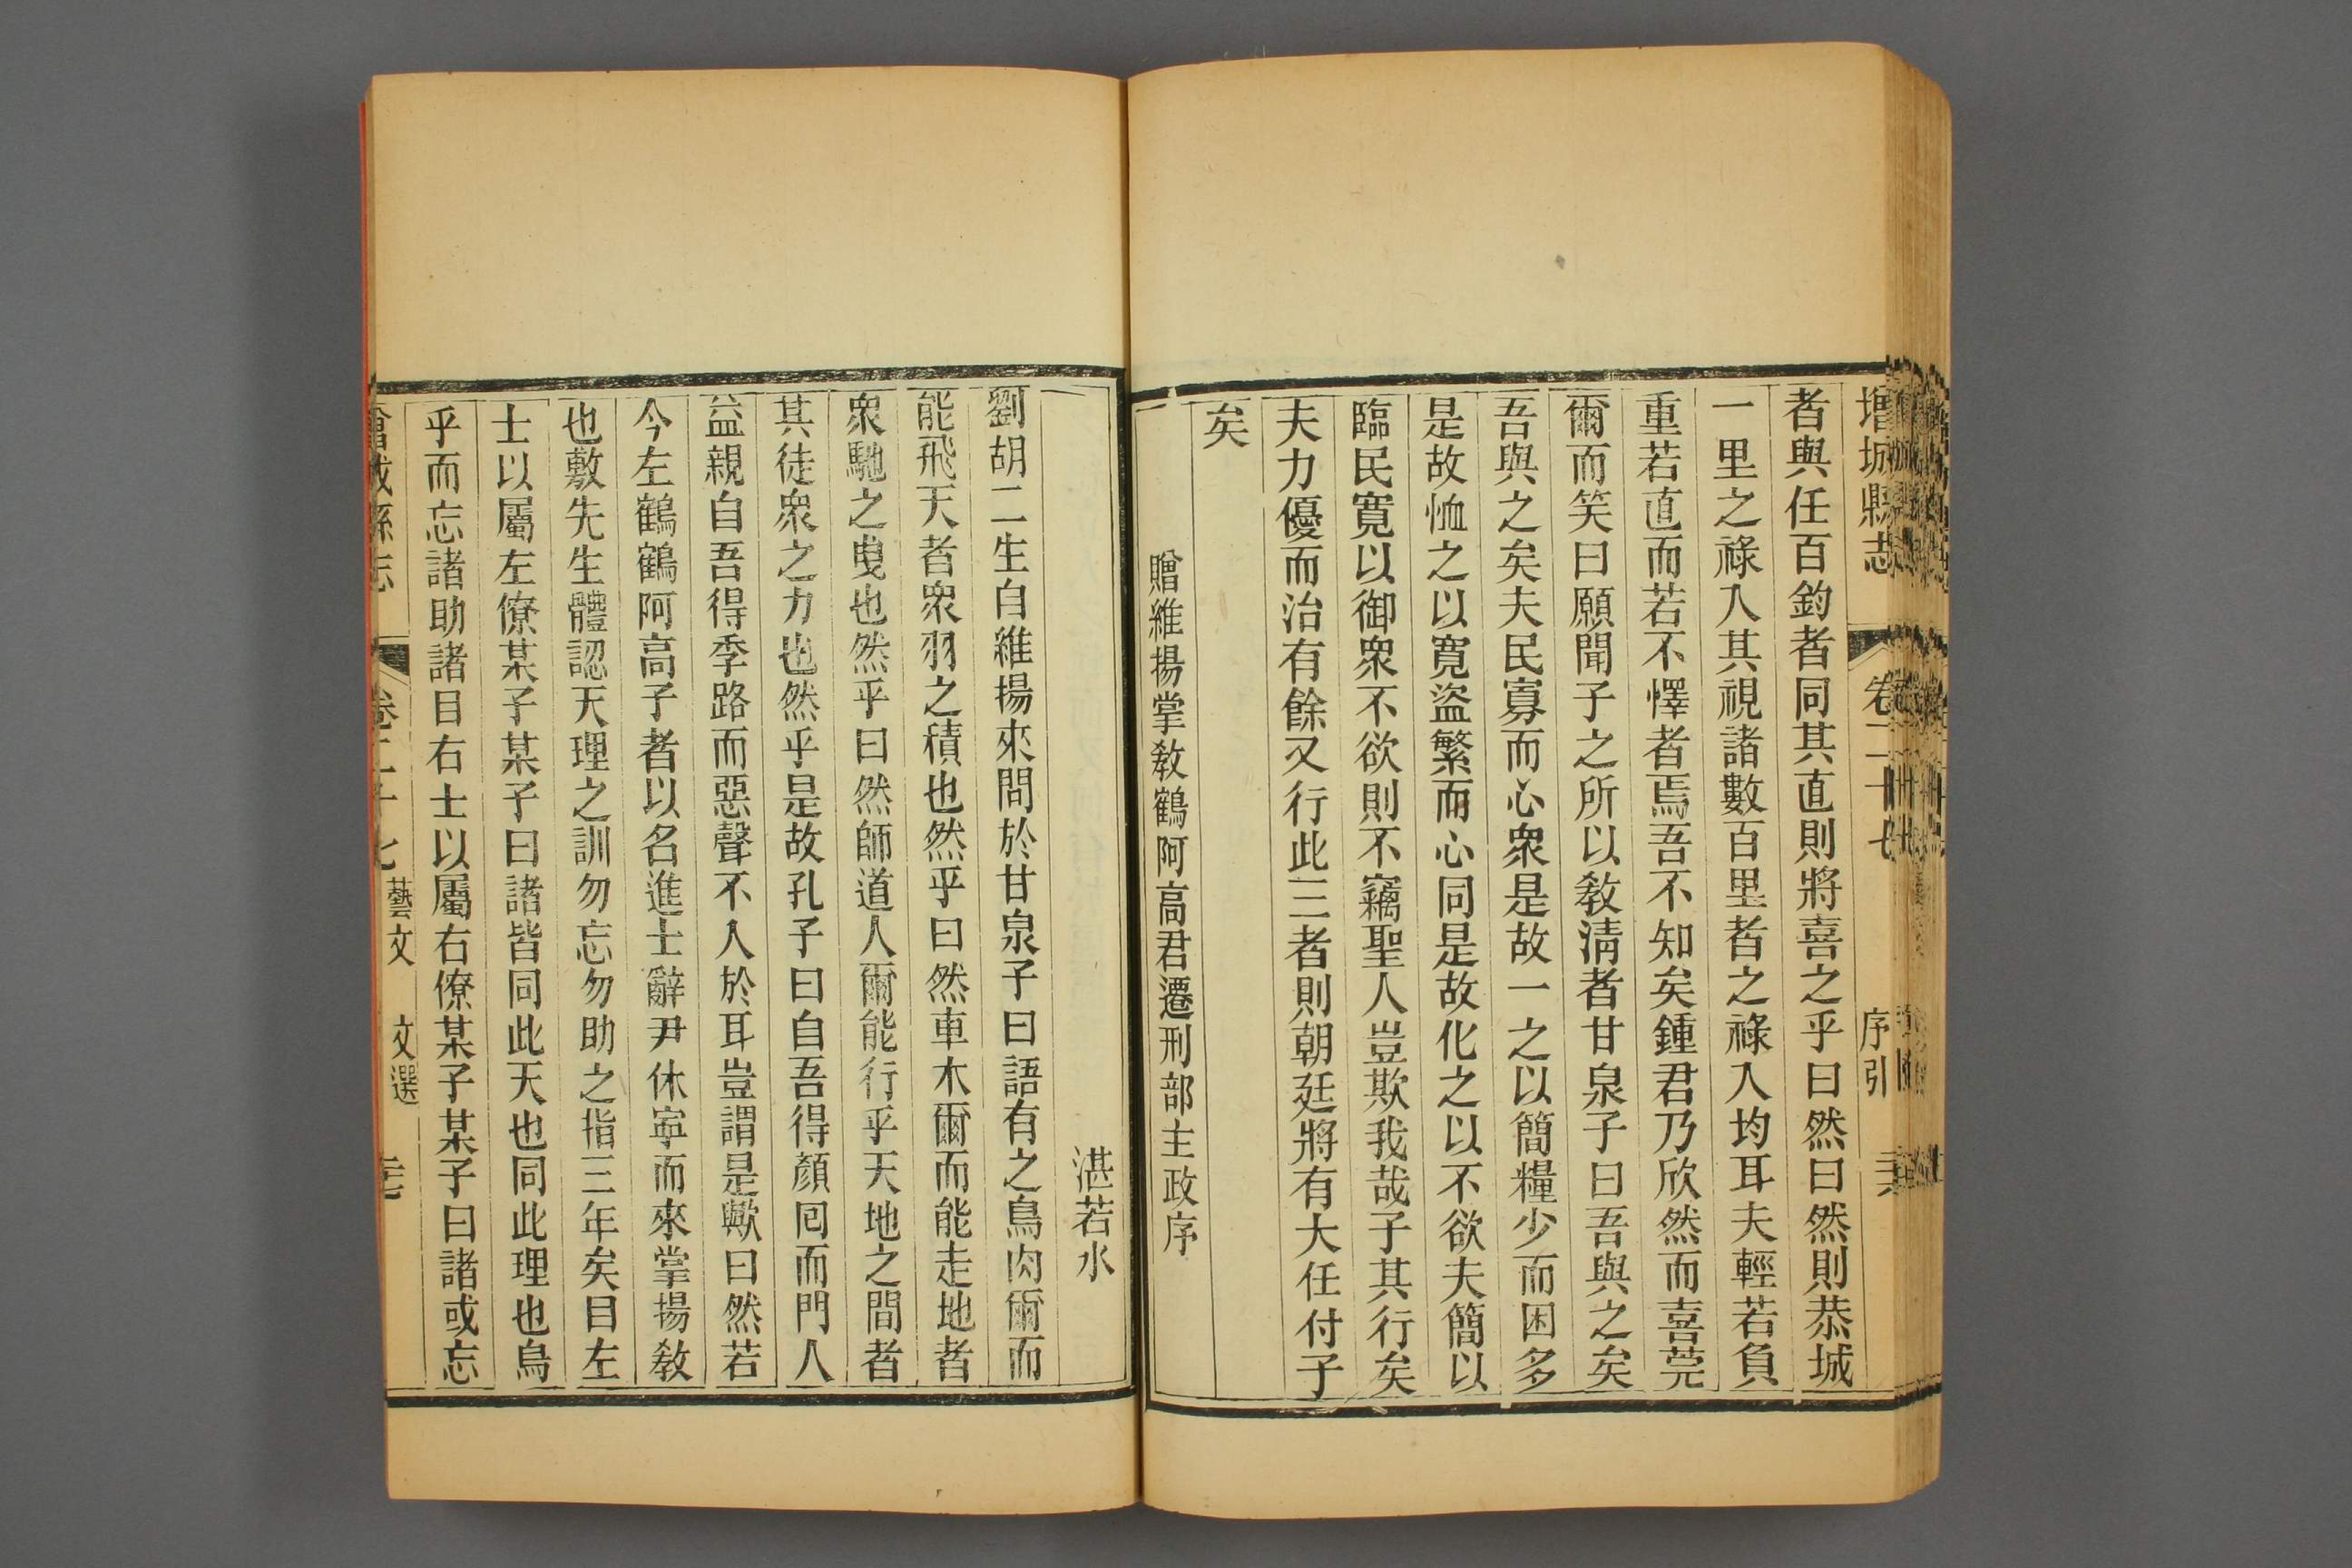 增城縣志 卷二十七 序引 三六
者與任百鈞者同其直則將喜之乎曰然曰然則恭城
一里之祿入其視諸數百里者之祿入均耳夫輕若負
重若直而若不懌者焉吾不知矣鍾君乃欣然而喜莞
爾而笑曰願聞子之所以敎淸者甘泉子曰吾與之矣
吾與之矣夫民寡而心衆是故一之以簡糧少而困多
是故恤之以寬盜繁而心同是故化之以不欲夫簡以
臨民寬以御衆不欲則不竊聖人豈欺我哉子其行矣
夫力優而治有餘又行此三者則朝廷將有大任付子
矣
贈維揚掌敎鶴阿高君遷刑部主政序
湛若水
劉胡二生自維揚來問於甘泉子曰語有之鳥肉爾而
能飛天者衆羽之積也然乎曰然車木爾而能走地者
衆馳之曳也然乎曰然師道人爾能行乎天地之間者
其徒衆之力也然乎是故孔子曰自吾得顏囘而門人
益親自吾得季路而惡聲不入於耳豈謂是歟曰然若
今左鶴鶴阿高子者以名進士辭尹休寧而來掌揚敎
也敷先生體認天理之訓勿忘勿助之指三年矣目左
士以屬左僚某子某子曰諸皆同此天也同此理也烏
乎而忘諸助諸目右士以屬右僚某子某子曰諸或忘
增城縣志 卷二十七 藝文 文選